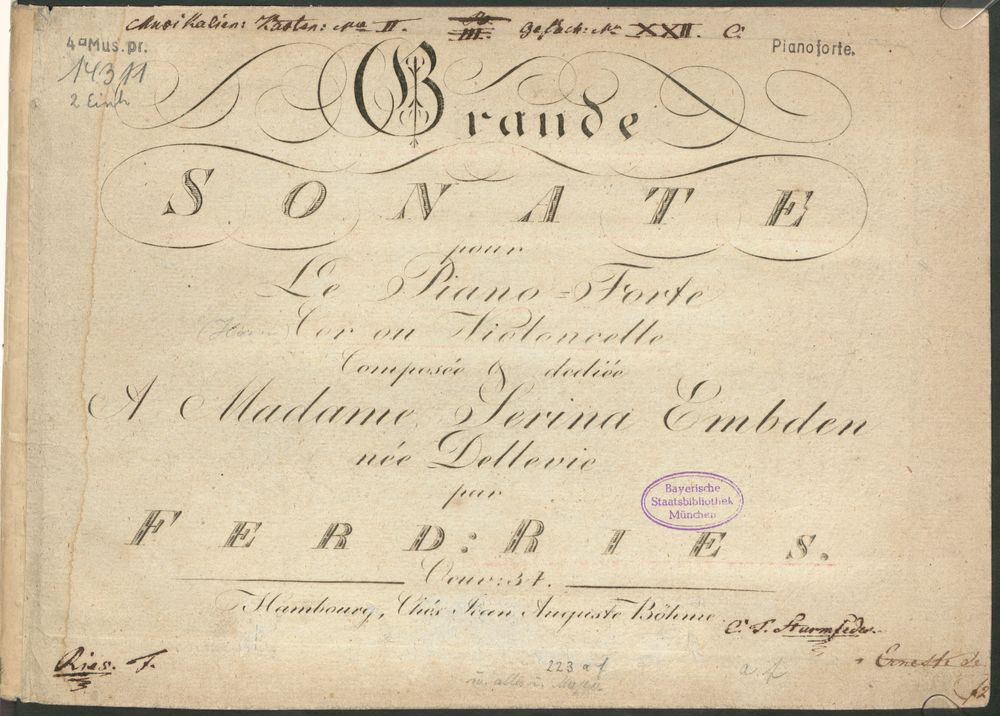 Musikalien: Kasten: Nro II. III. Gefach: Nr XXII. C.
4° Mus. pr.
14311
Pianoforte.
Grande
SONATE
pour
Le Piano=Forte
Cor ou Violoncelle
Composée & dediée
A Madame Serina Embden
née Dellevie
par
FERD: RIES.
Oeuv: 34.
Hambourg, Chés Jean Auguste Böhme
Bayerische
Staatsbibliothek
München
Ries. F.
223 a f
Erneste de